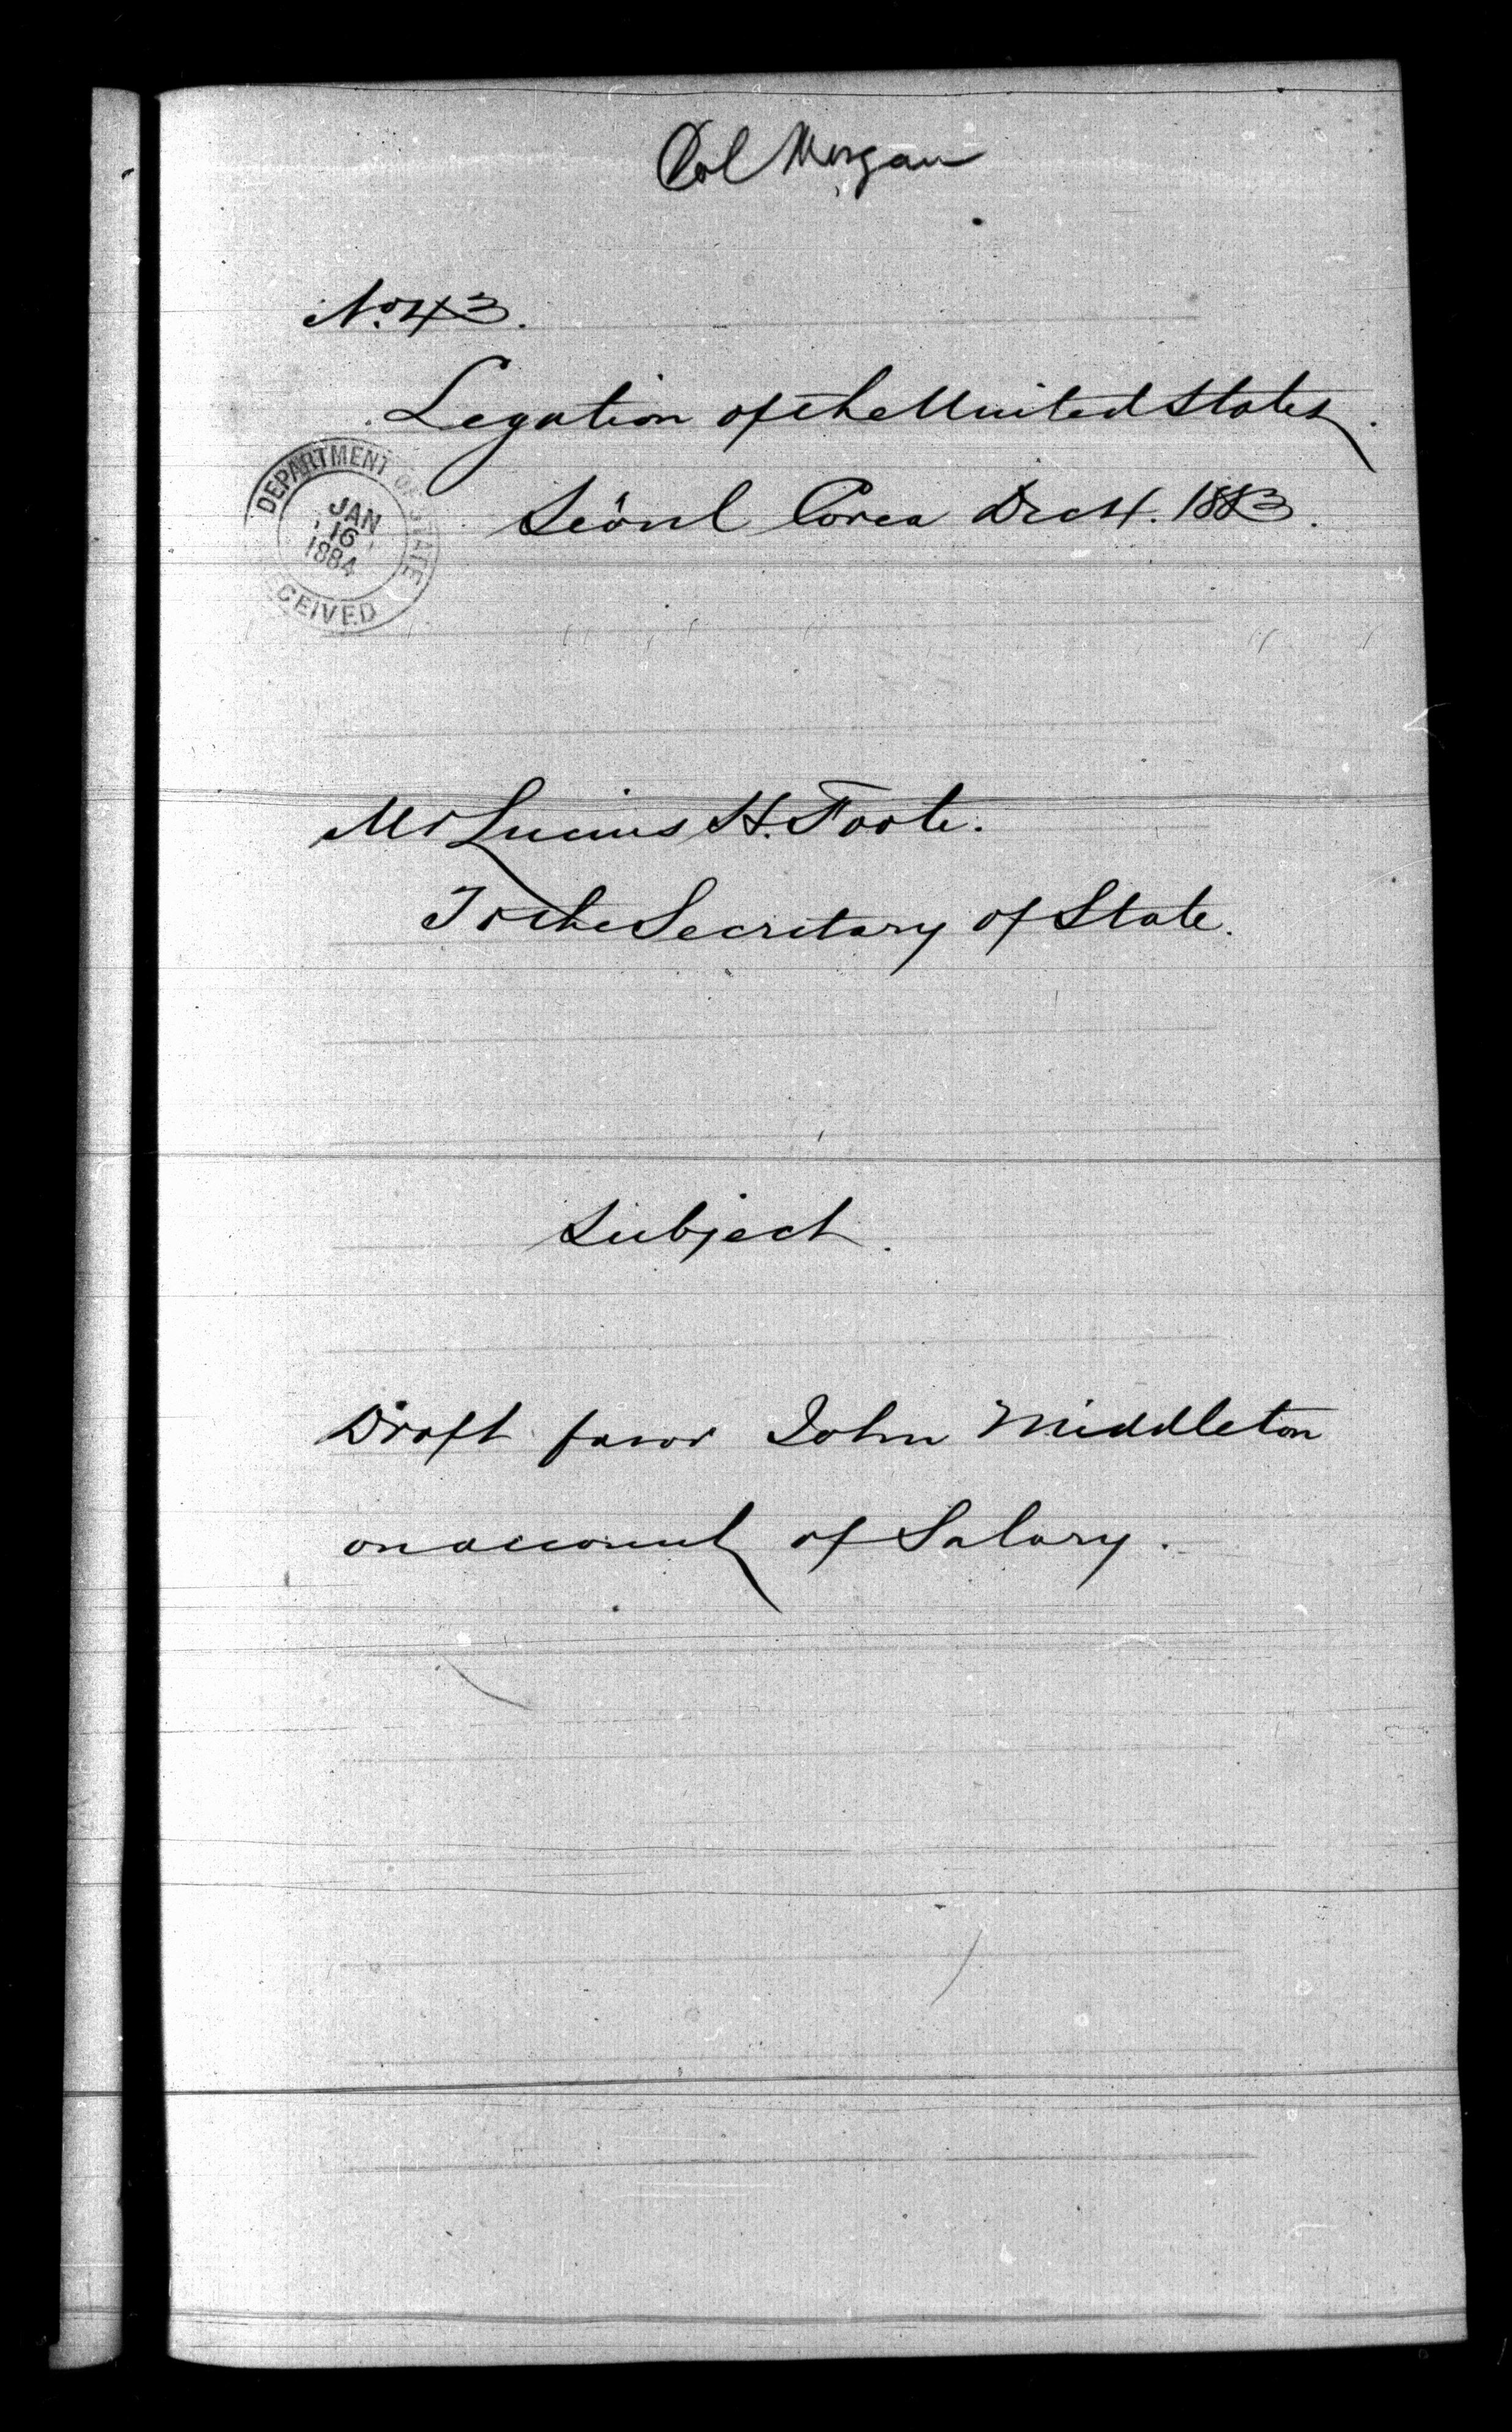 Col Morgan
No. 43.
Legation of the United States.
Séoul Corea Dec 4. 1883.
DEPARTMENT OF STATE
JAN
16
1884
RECEIVED
Mr Lucius H. Foote.
To the Secretary of State.
Subject.
Draft favor John Middleton
on account of Salary.